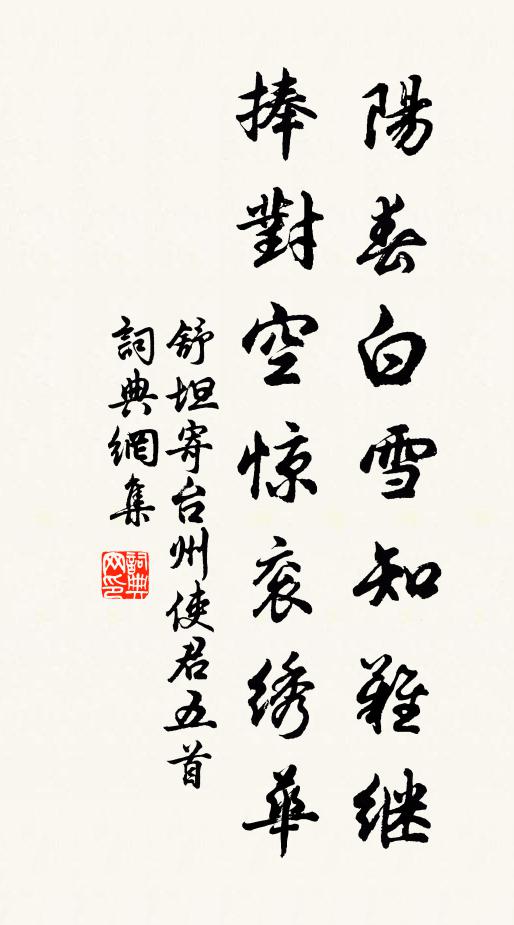 陽春白雪知難继
捧對空惊衮綉華
舒坦寄台州使君五首
詞典網集
詞典网印